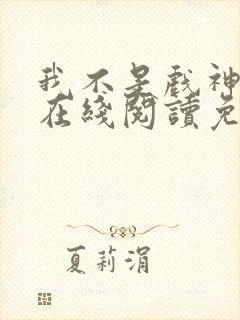 我不是戲神
在綫閱讀免
夏莉涓